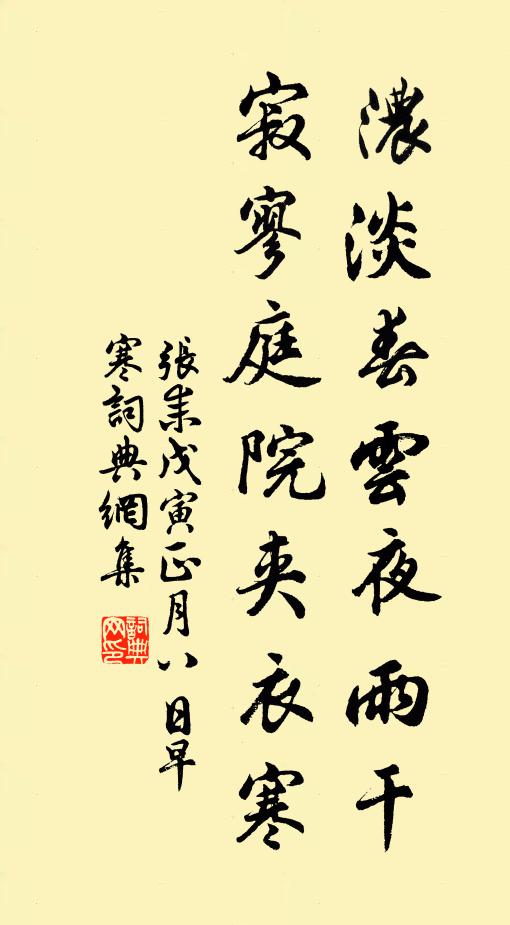 濃淡春雲夜雨干
寂寥庭院夾衣寒
張耒戊寅正月八日早
寒詞典網集
詞典
网印